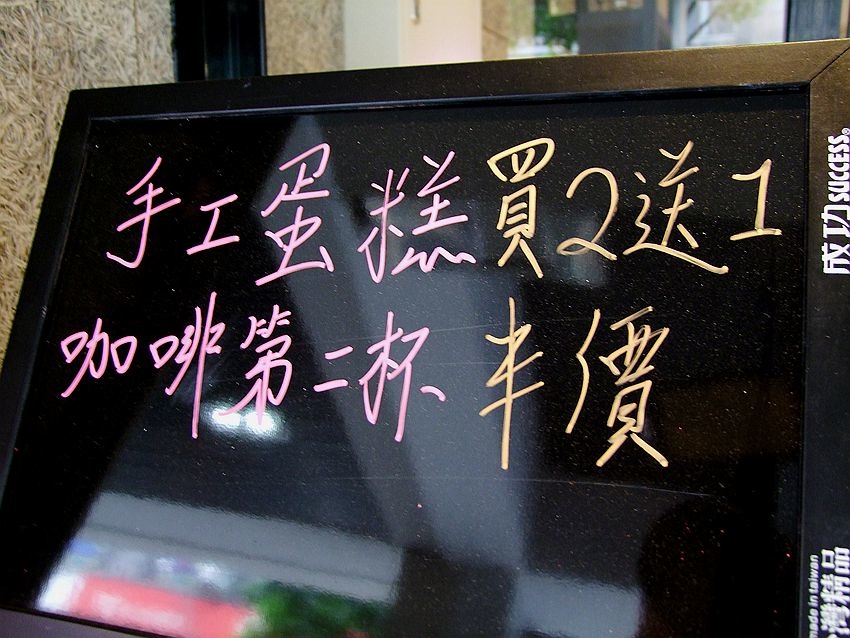 手工蛋糕買2送1
咖啡第二杯半價
成功 SUCCESS®
made in taiwan